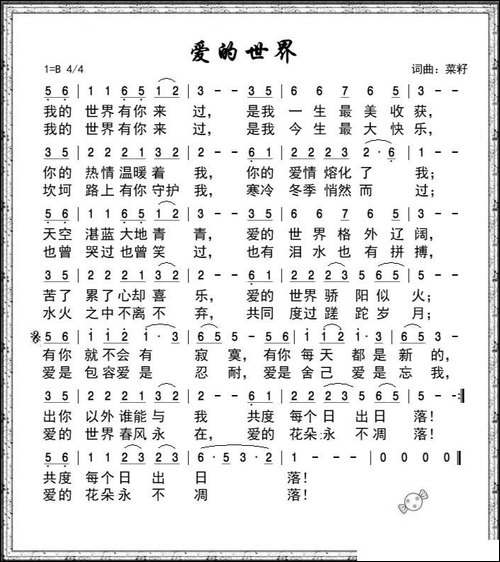 爱的世界
1=B 4/4
词曲：菜籽
5 6 | 1 1 6 5 1 2 | 3 - - 3 5 | 6 6 7 6 5 | 3 - -
我的 世界有你来 过， 是我 一生最美收 获，
我的 世界有你来 过， 是我 今生最大快 乐，
3 5 | 2 2 2 1 3 2 | 1 - - 6 1 | 2 2 2 2 3 | 2 · 6 1 -
你的 热情温暖着 我， 你的 爱情 熔化了 我；
坎坷 路上有你守护 我， 寒冷 冬季 悄然而 过；
5 6 | 1 1 6 5 1 2 | 3 - - 3 5 | 6 6 7 6 5 | 3 - -
天空 湛蓝大地青 青， 爱的 世界格外辽 阔，
也曾 哭过也曾笑 过， 也有 泪水也有拼 搏，
3 5 | 2 2 2 1 3 2 | 2 - - 6 1 | 2 2 2 3 5 6 5 | 5 - -
苦了 累了心却喜 乐， 爱的 世界骄阳似 火；
水火 之中不离不 弃， 共同 度过蹉跎岁 月；
5 6 | 1 1 2 1 · 3 | 6 - - 5 6 | 1 1 2 1 6 5 | 3 - -
有你 就不会有 寂 寞，有你 每天 都是新 的，
爱是 包容爱是 忍 耐，爱是 舍己 爱是忘 我，
3 5 | 2 2 2 1 3 2 | 3 - - 6 1 | 2 2 2 3 5 6 5 | 5 - - :||
出你 以外谁能与 我 共度 每个日出日 落！
爱的 世界春风永 在， 爱的 花朵永不凋 落！
5 6 | 1 1 2 3 2 3 | 6 · 5 3 · 2 | 1 - - - | 0 0 0 0 ||
共度 每个日出 日 落！
爱的 花朵永不 凋 落！